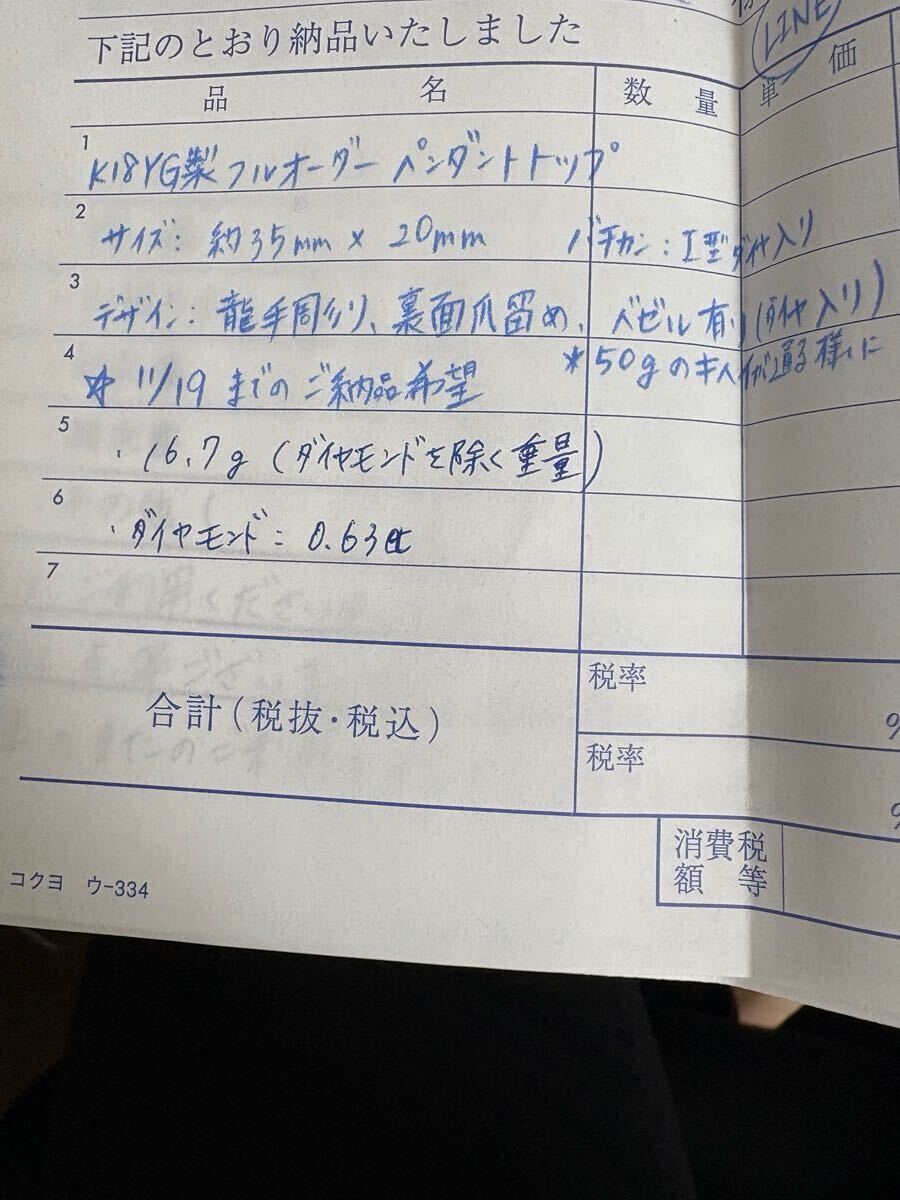 LINE
下記のとおり納品いたしました
品 名 数 量 単 価
1 K18YG製 フルオーダー ペンダントトップ
2 サイズ: 約35mm × 20mm バチカン: 工型ダイヤ入り
3 デザイン: 龍手周彡り、裏面爪留め、ベゼル有り(ダイヤ入り)
4 ☆ 11/19 までのご納品希望 *50gのキヘイが通る様に
5 ・16.7g (ダイヤモンドを除く重量)
6 ・ダイヤモンド: 0.63ct
7
合計(税抜・税込) 税率 %
税率 %
消費税
額 等
コクヨ ウ-334